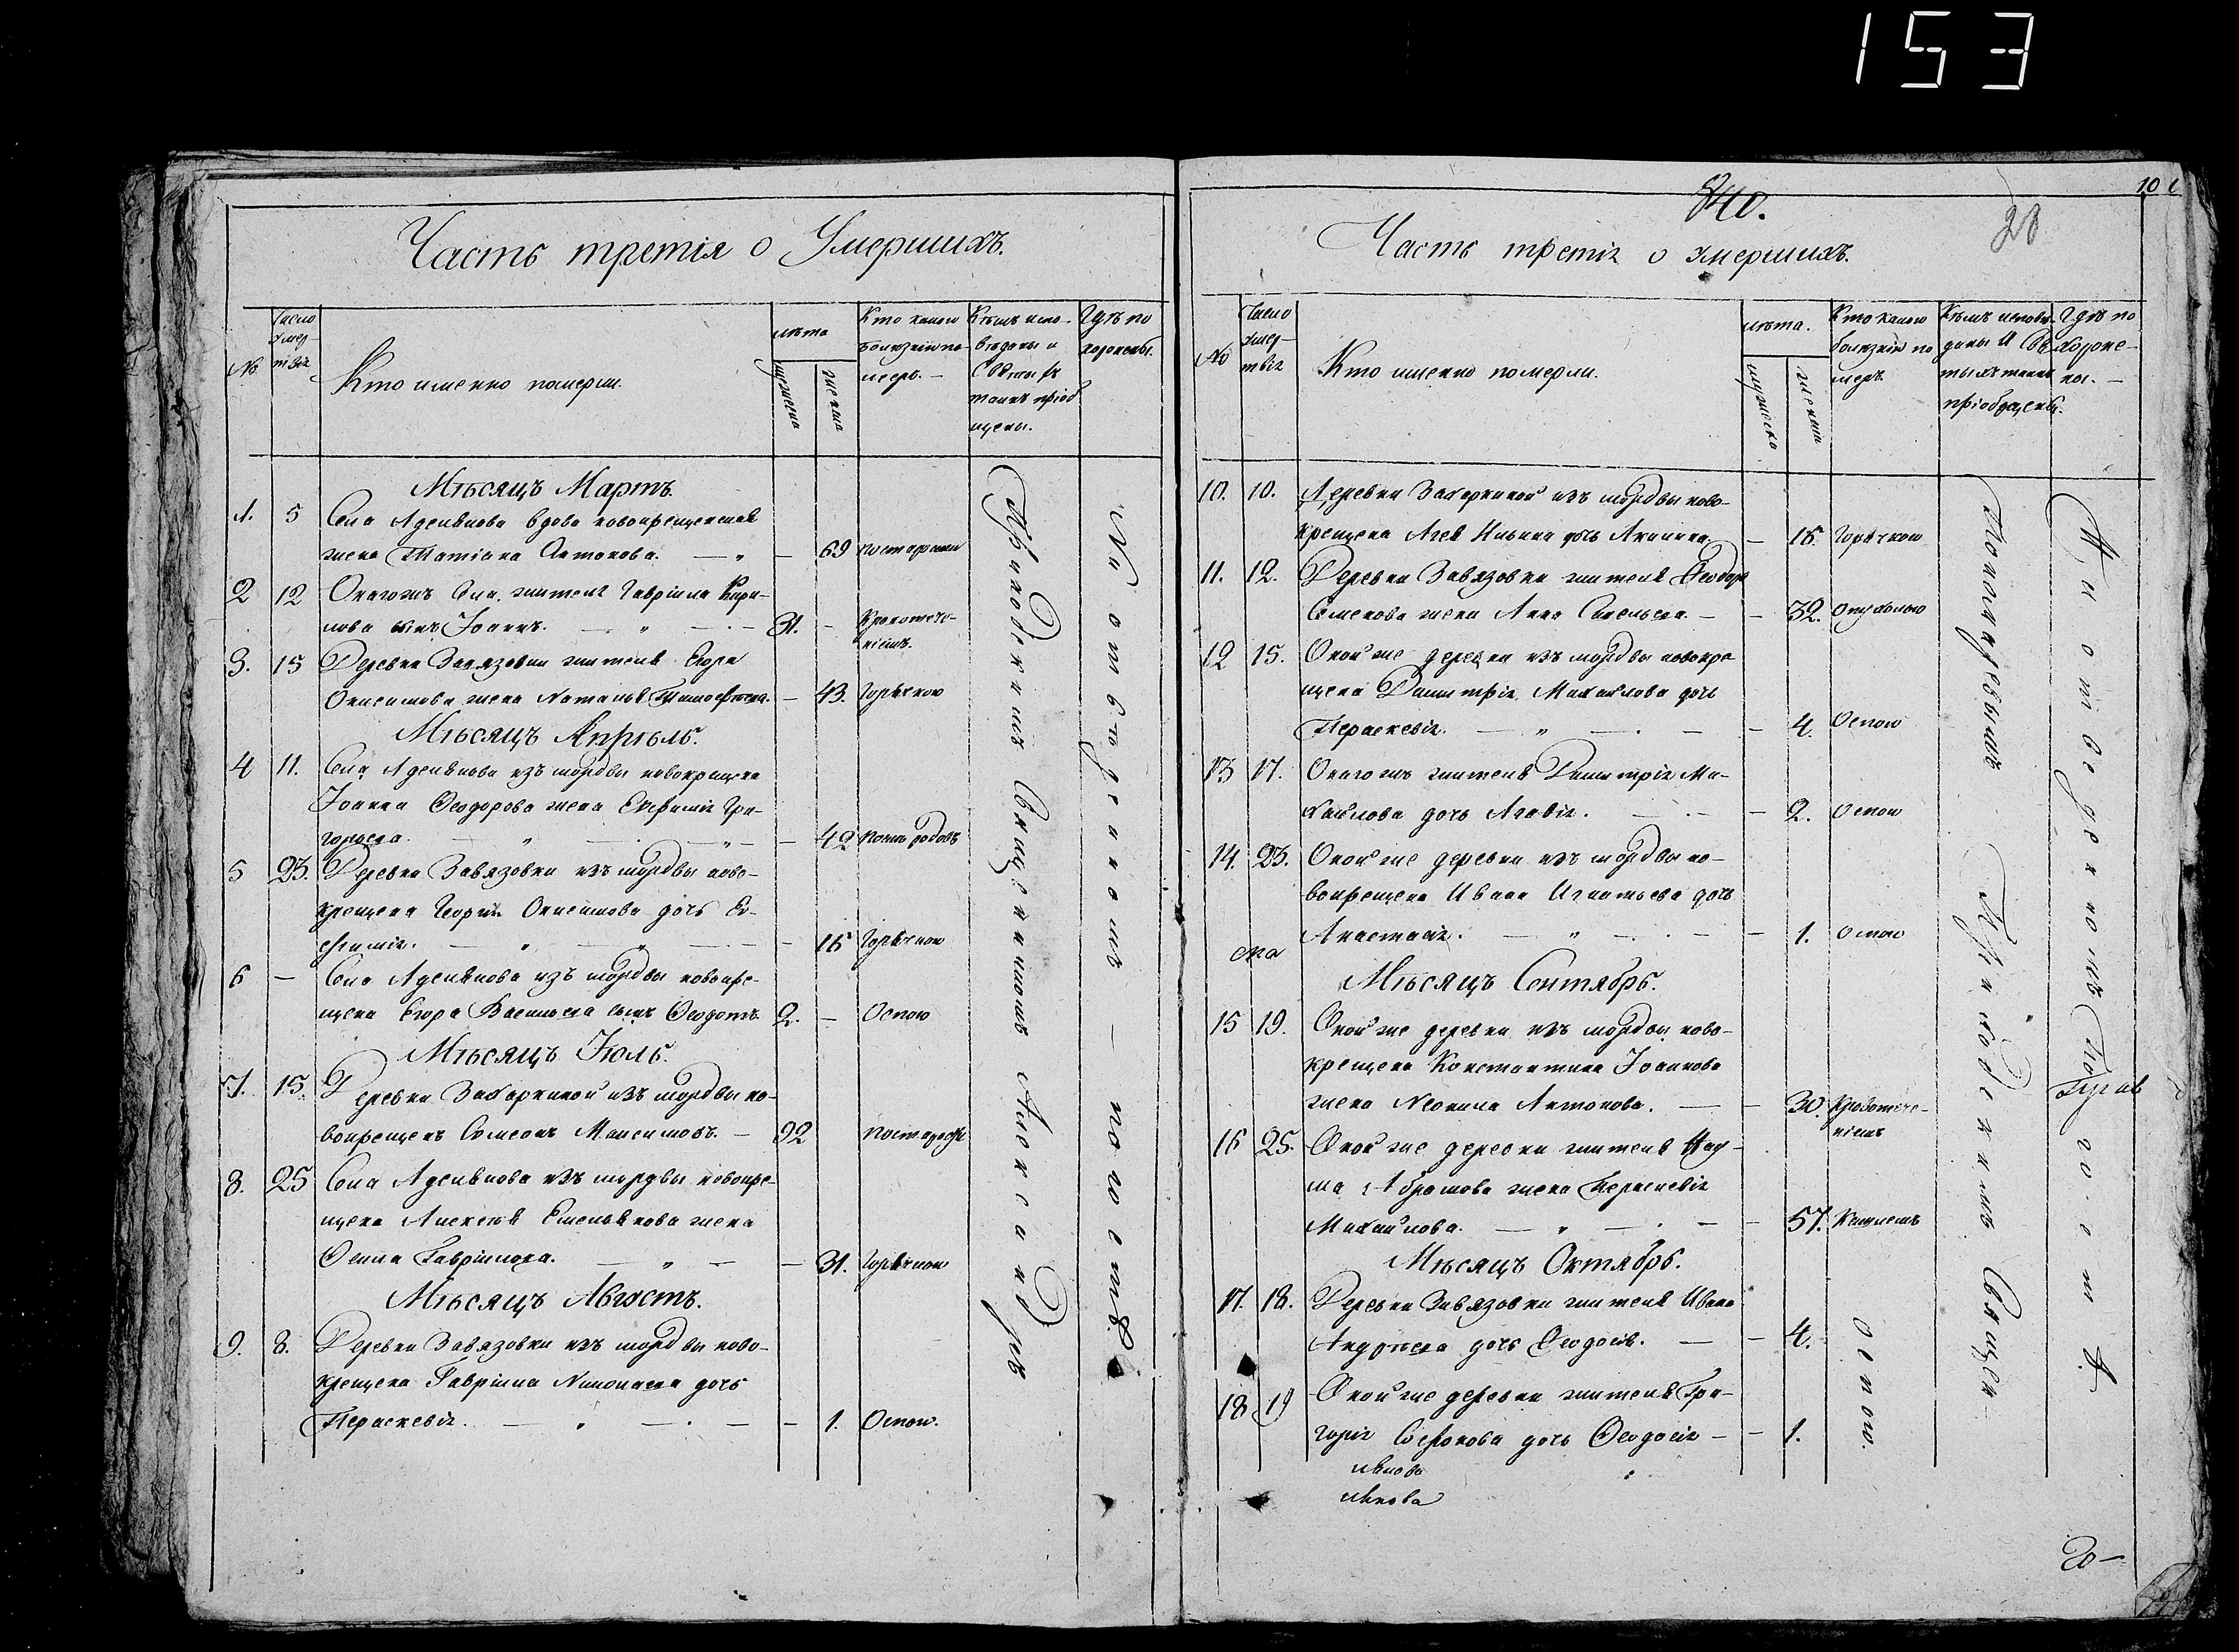 153
Часть третія о Умершихъ.
№
Число умер-
твія
Кто именно померли.
лѣта
мужеска
женска
Кто какою
болѣзнію по-
меръ. —
Кѣмъ испо-
вѣданы и
Святыхъ
таинъ пріоб
щены.
Гдѣ по
хоронены.
Мѣсяцъ Мартъ.
1. 5 Села вдова новокрещенская
жена Татіана Антонова. — „ — 69
2 12 Онагожъ Села жителя Гавріила Кири-
лова сынъ Іоаннъ. — „ — 31. — Кровотече-
ніемъ.
3. 15 Деревни Завязовки жителя Егора
Онисимова жена Наталья Тимофѣева. — 43. Горячкою
Мѣсяцъ Апрѣль.
4 11. Села изъ мордвы новокрещена
Іоанна Ѳеодорова жена Евфимія Гри-
горьева. — „ — 42
5 23. Деревни Завязовки изъ мордвы ново-
крещена Георгія Онисимова дочь Ев-
фимія. — „ — 16 Горячкою
6 — Села изъ мордвы новокре-
щена Егора Васильева сынъ Ѳеодотъ. 2. — Оспою
Мѣсяцъ Іюль.
7. 15. Деревни Захаркиной изъ мордвы но-
вокрещенъ Симеонъ Максимовъ. — 92
8. 25 Села изъ мордвы новокре-
щена Алексѣя Емельянова жена
Гаврилова. — „ — 31. Горячкою
Мѣсяцъ Августъ.
9. 8. Деревни Завязовки изъ мордвы ново-
крещена Гавріила Николаева дочь
Параскевія. — „ — 1. Оспою.
Приходскимъ Священникомъ Александръ
На отведенномъ — полѣ
840.
28
Часть третія о умершихъ.
№
Число
умер-
твія
Кто именно померли.
лѣта.
мужеска
женска
Кто какою
болѣзнію по
меръ.
Кѣмъ исповѣ-
даны и Свя-
тыхъ таинъ
пріобщены.
Гдѣ по
хороне-
ны. —
10. 10. Деревни Захаркиной изъ мордвы ново-
крещена Ильина дочь Акилина. — 15. Горячкою
11. 12. Деревни Завязовки жителя Ѳеодора
Семенова жена Анна Савельева. — 32. Опухолью
12 15. Оной же деревни изъ мордвы новокре
щена Димитрія Михайлова дочь
Параскевія. — „ — 4. Оспою
13 17. Онагожъ жителя Димитрія Ми-
хайлова дочь Агафія. — 2. Оспою
14. 23. Оной же деревни изъ мордвы но-
вокрещена Ивана Игнатьева дочь
Анастасія. — „ — 1. Оспою
Мѣсяцъ Сентябрь.
15 19. Оной же деревни изъ мордвы ново-
крещена Константина Іоаннова
жена Неонила Антонова. — 30. Кровотече-
ніемъ
16 25. Оной же деревни жителя Нау-
ма Абрамова жена Параскевія
Михайлова. — „ — 57. Кашлемъ
Мѣсяцъ Октябрь.
17. 18. Деревни Завязовки жителя Ивана
Андреева дочь Ѳеодосія. — 4.
18 19 Оной же деревни жителя Гри-
горія Софонова дочь Ѳеодосія — 1.
Оспою.
Приходскимъ Священ-
20 —